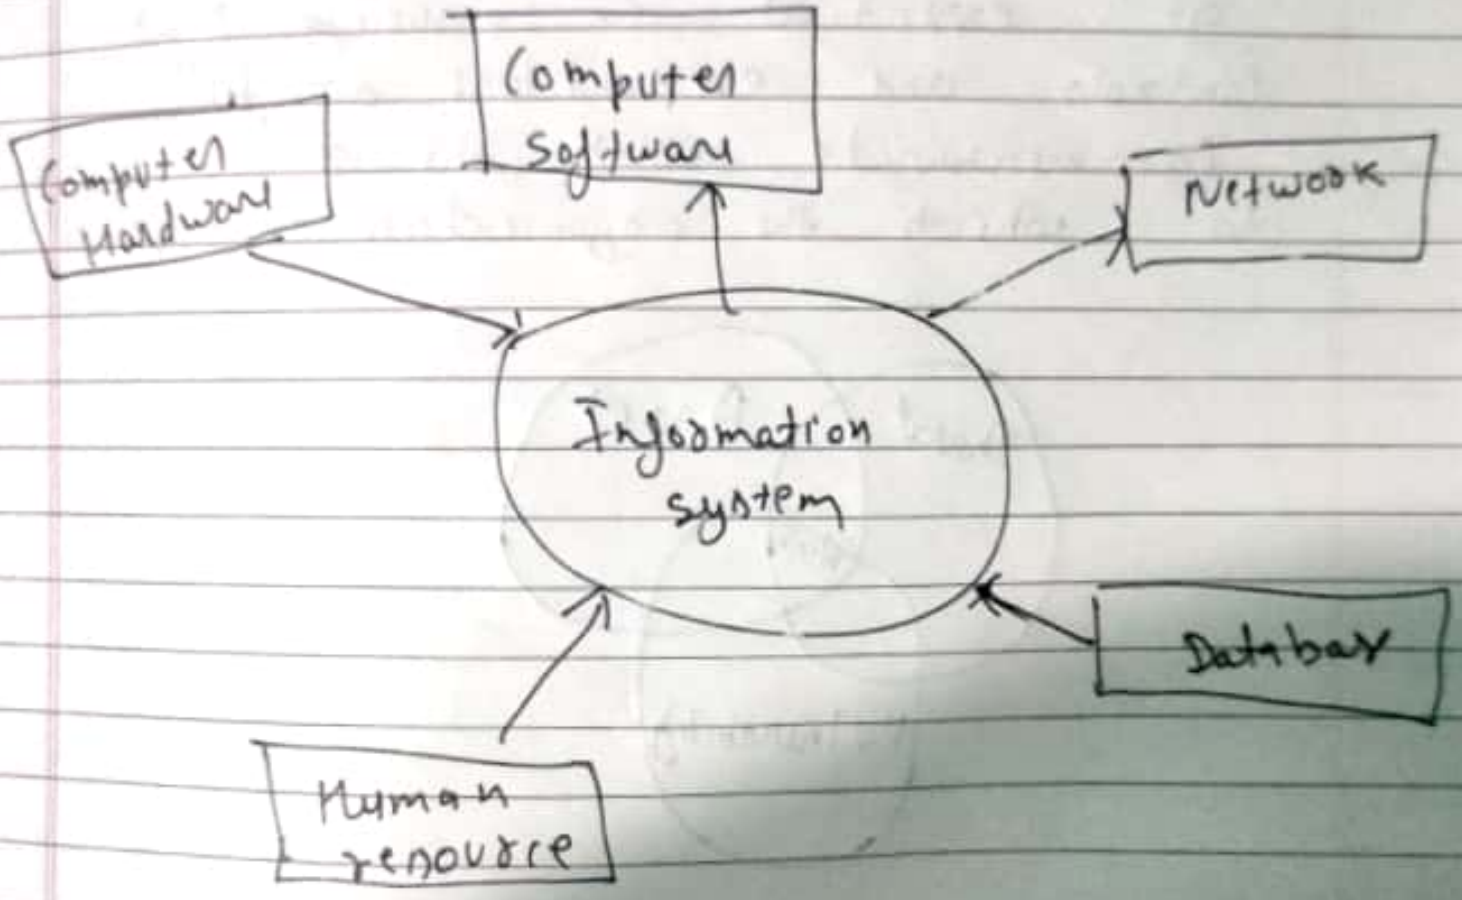 Computer
Software
Computer
Hardware
Network
Information
system
Database
Human
resource